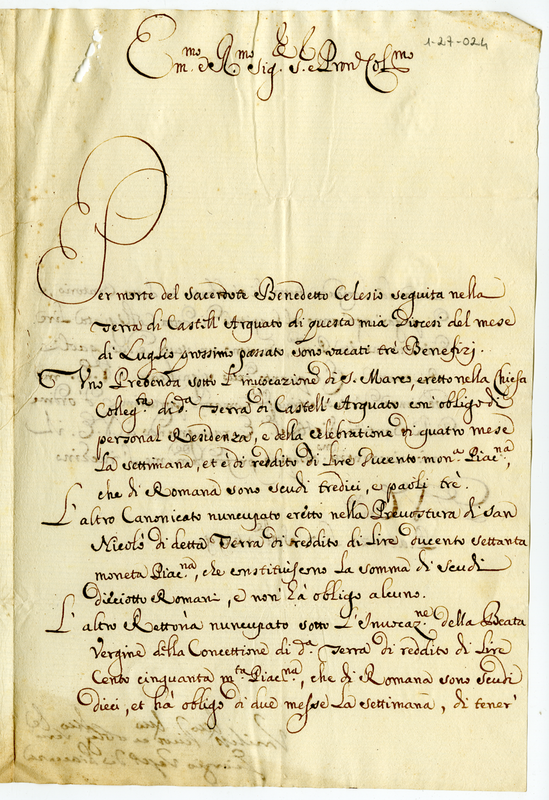 1-27-024
Em.mo e R.mo Sig. S. e Pron Col.mo
Per morte del sacerdote Benedetto Celesio seguita nella
Terra di Castell' Arquato di questa mia Diocesi del mese
di Luglio prossimo passato sono vacati trè Benefizj.
Uno Prebenda sotto l'invocazione di S. Marco, eretto nella Chiesa
Colleg.ta di d.a Terra di Castell' Arquato con obligo di
personal Residenza, e della celebratione di quatro messe
La settimana, et è di reddito di Lire ducento mon.a Piac.na,
che di Romana sono scudi tredici, e paoli trè.
L'altro Canonicato nuncupato eretto nella Prevostura di San
Nicolò di detta Terra di reddito di Lire ducento settanta
moneta Piac.na, che constituiscono la somma di scudi
dieciotto Romani, e non hà obligo alcuno.
L'altro Rettoria nuncupato sotto L'Invocaz.ne della Beata
Vergine della Concettione di d.a Terra di reddito di Lire
Cento cinquanta m.ta Piac.na, che di Romana sono scudi
dieci, et hà obligo di due messe La settimana, di tener